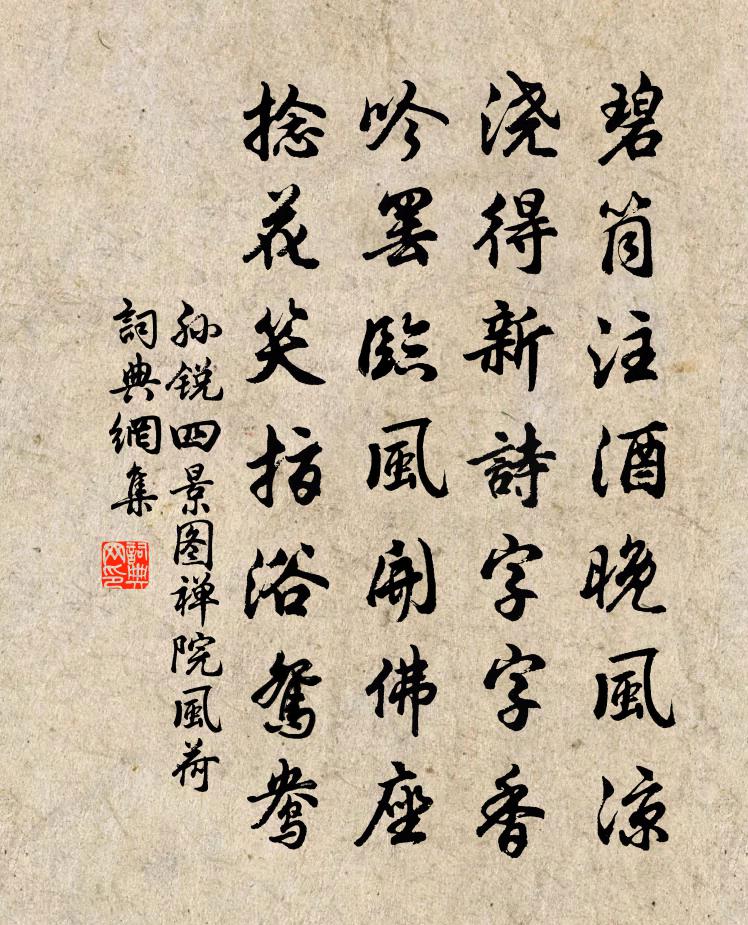 碧筒注酒晚风凉
浇得新詩字字香
吟罢臨風開佛座
捻花笑指浴鴛鴦
孙锐四景图禅院风荷
詞典網集
詞典网印